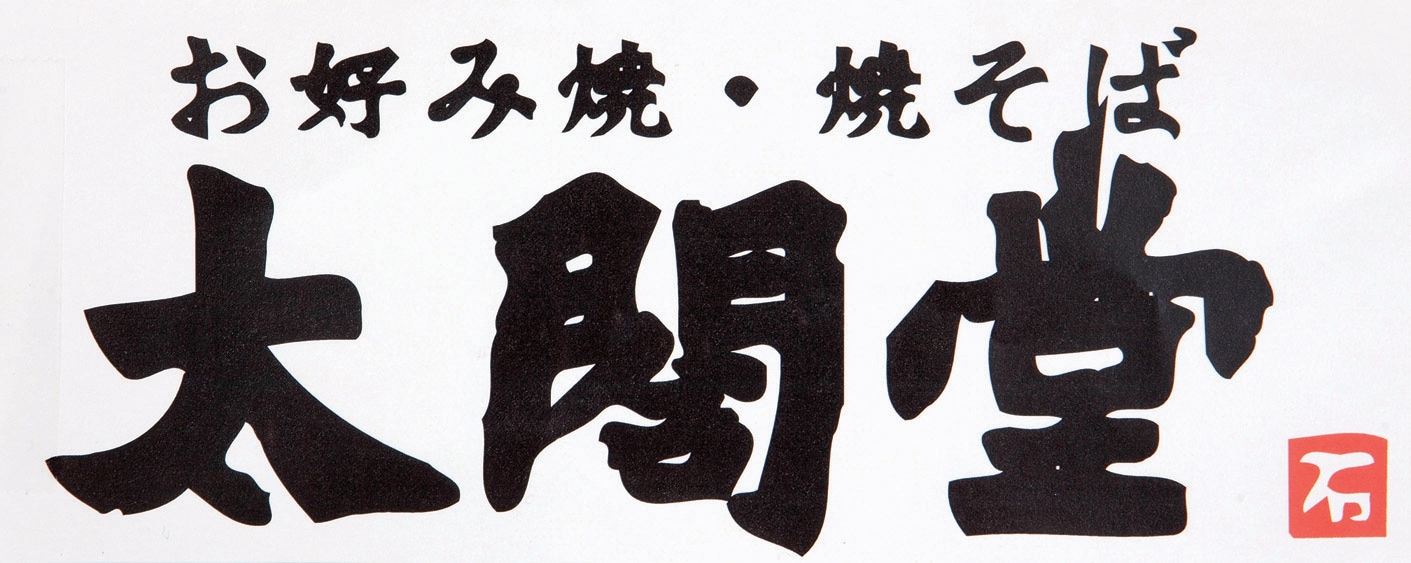 お好み焼・焼そば
太閤堂
石